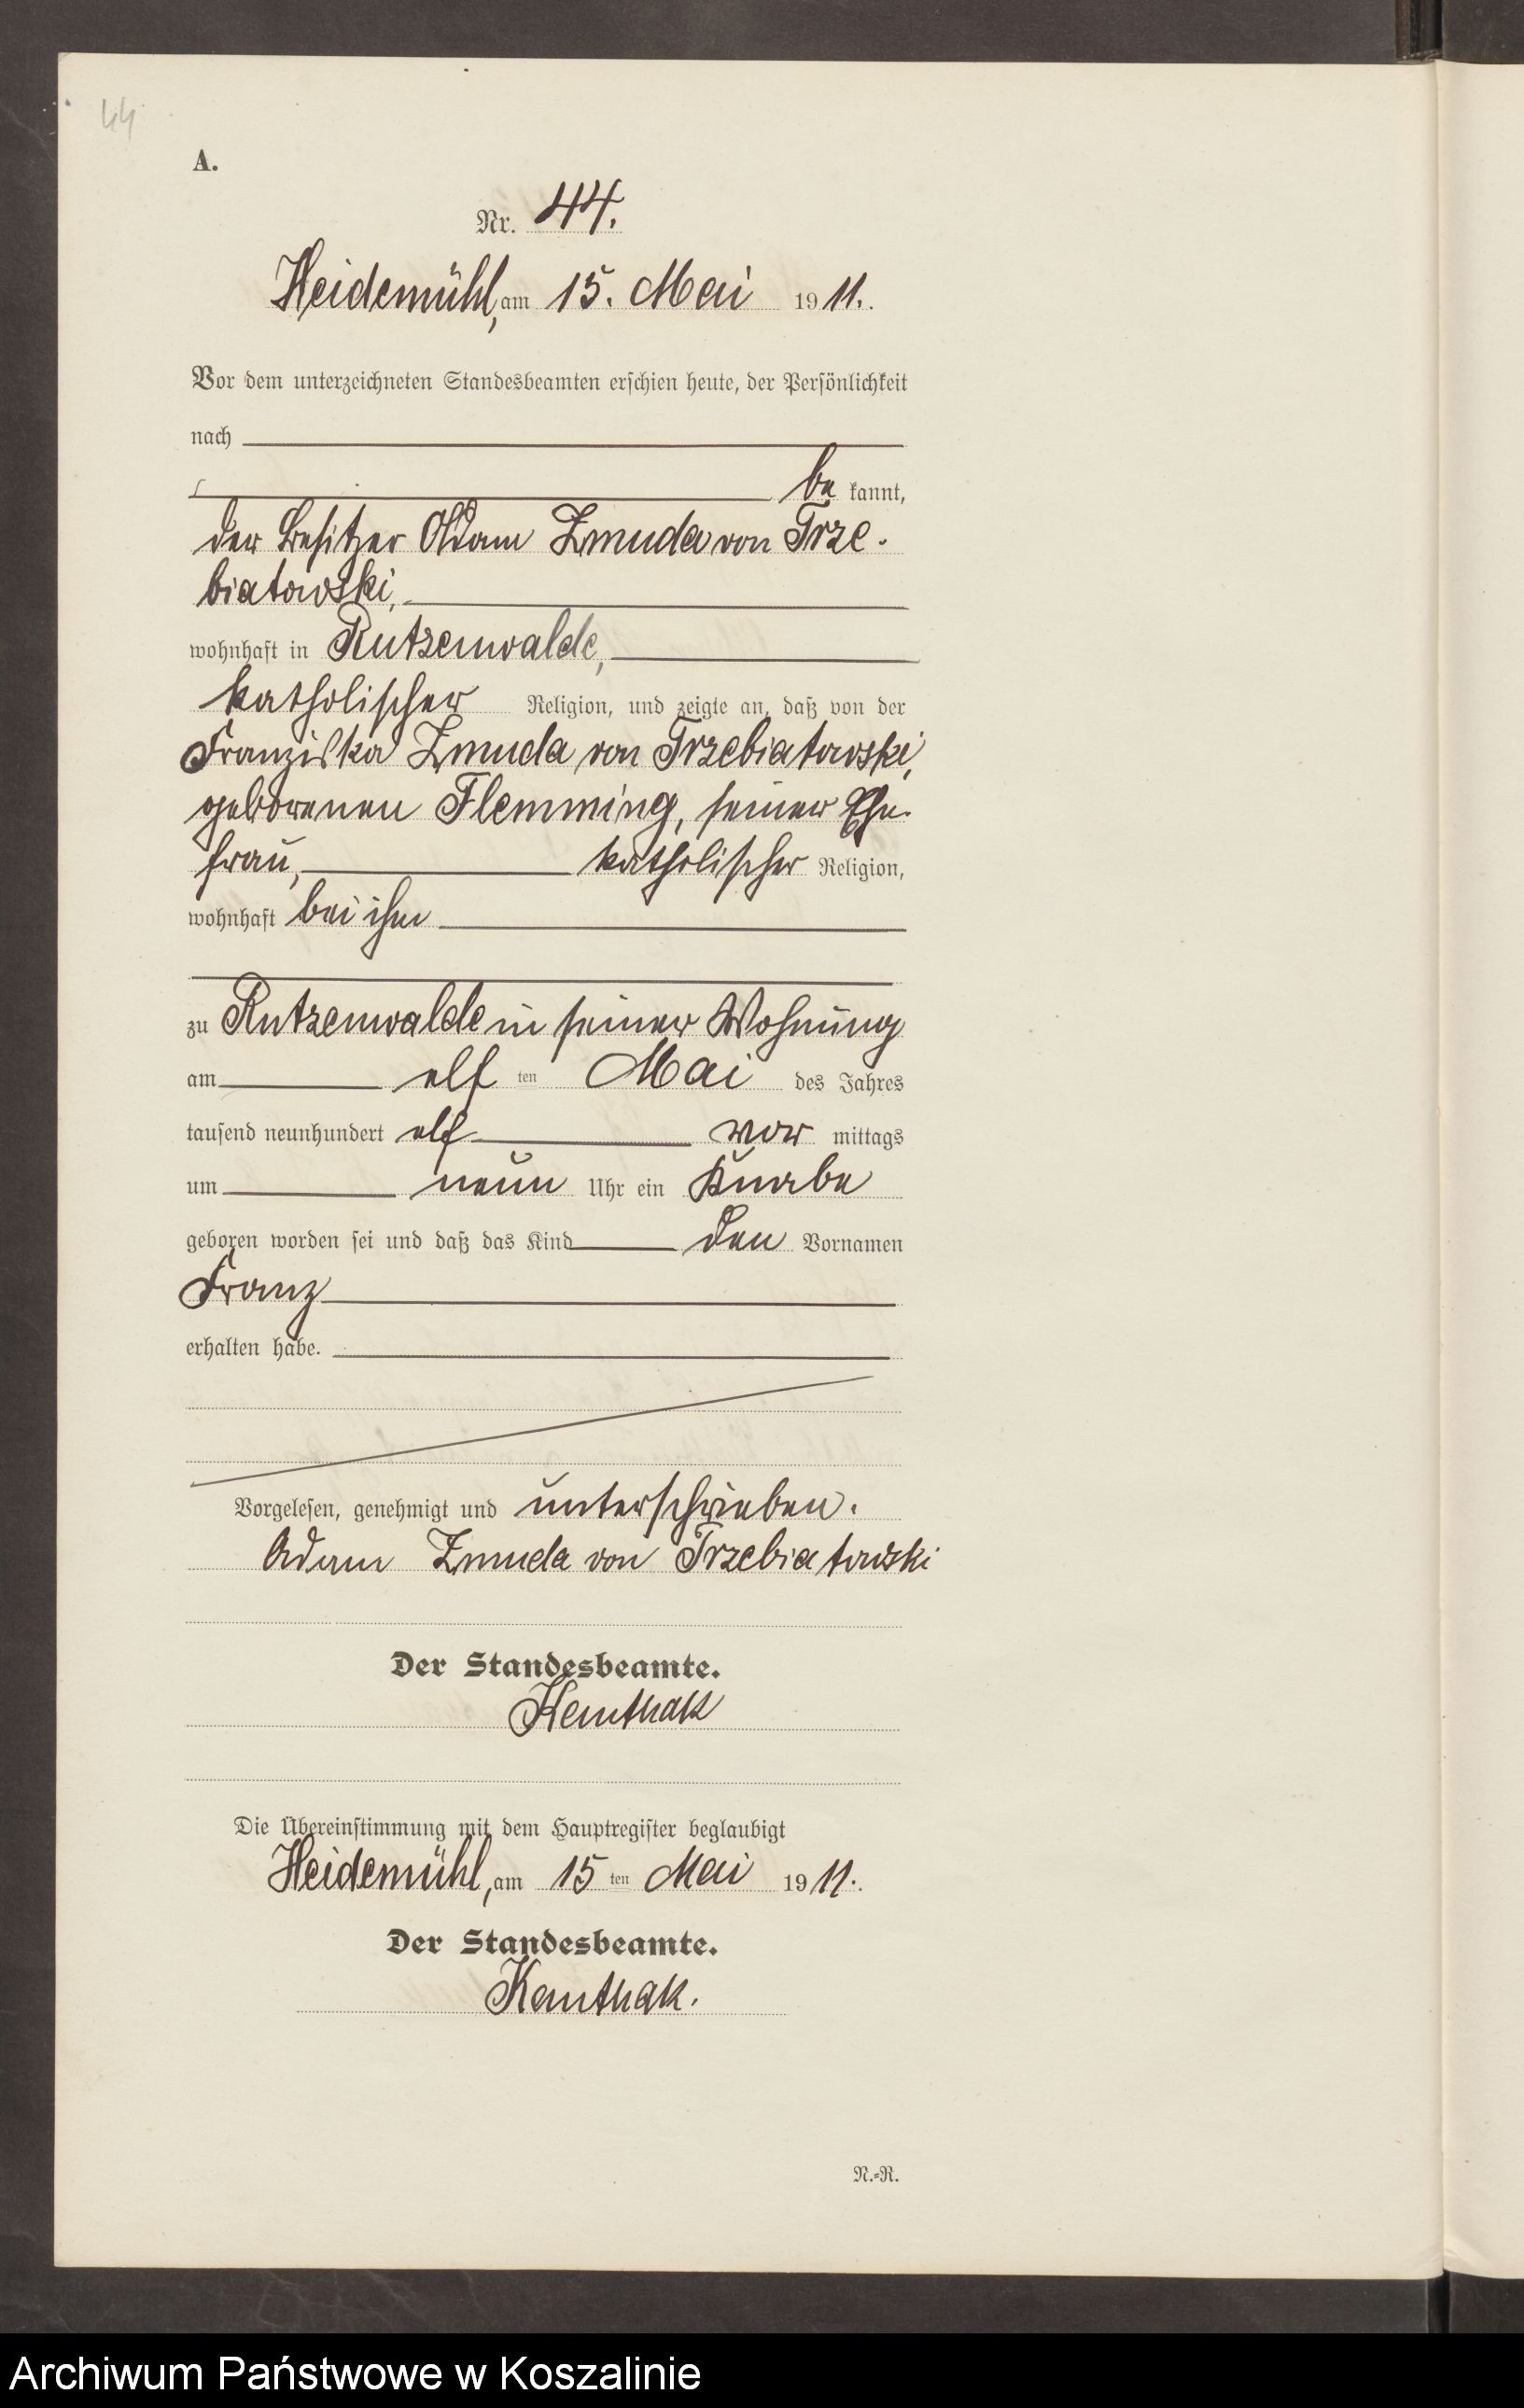 44
A.
Nr. 44.
Heidemühl, am 15. Mai 1911.
Vor dem unterzeichneten Standesbeamten erschien heute, der Persönlichkeit
nach
be kannt,
der Besitzer Adam Zmuda von Trze-
biatowski,
wohnhaft in Rutzenwalde,
katholischer Religion, und zeigte an, daß von der
Franziska Zmuda von Trzebiatowski,
geborenen Flemming, seiner Ehe-
frau, katholischer Religion,
wohnhaft bei ihm
zu Rutzenwalde in seiner Wohnung
am elf ten Mai des Jahres
tausend neunhundert elf vor mittags
um neun Uhr ein Knabe
geboren worden sei und daß das Kind den Vornamen
Franz
erhalten habe.
Vorgelesen, genehmigt und unterschrieben.
Adam Zmuda von Trzebiatowski
Der Standesbeamte.
Die Übereinstimmung mit dem Hauptregister beglaubigt
Heidemühl, am 15 ten Mai 1911.
Der Standesbeamte.
N.=R.
Archiwum Państwowe w Koszalinie